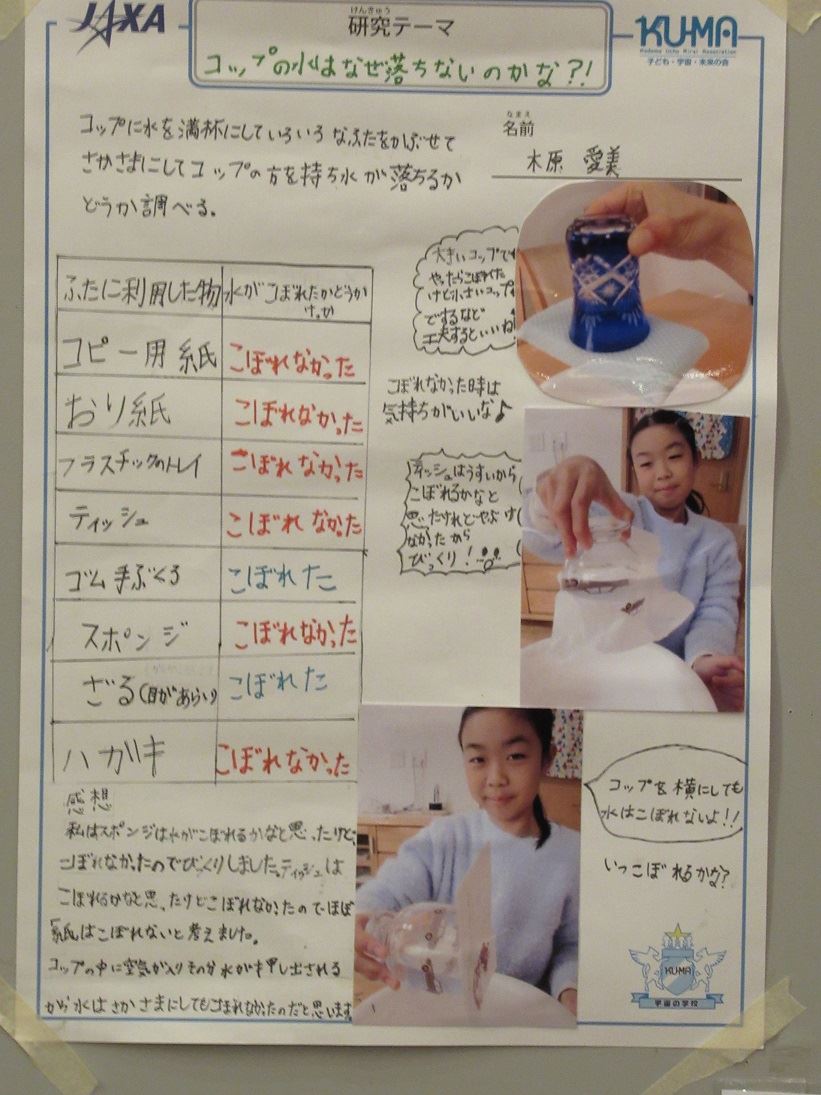 JAXA
けんきゅう
研究テーマ
コップの水はなぜ落ちないのかな?!
KU-MA
Kodomo Uchu Mirai Association
子ども・宇宙・未来の会
コップに水を満杯にしていろいろなふたをかぶせて
さかさまにしてコップの方を持ち水が落ちるか
どうか調べる。
なまえ
名前
木原 愛美
ふたに利用した物 水がこぼれたかどうか
けっか
コピー用紙 こぼれなかった
おり紙 こぼれなかった
プラスチックのトレイ こぼれなかった
ティッシュ こぼれなかった
ゴム手ぶくろ こぼれた
スポンジ こぼれなかった
ざる(目があらい) こぼれた
ハガキ こぼれなかった
大きいコップでも
やったらこぼれた
けど小さいコップ
でするなど
工夫するといいね
こぼれなかった時は
気持ちがいいな♪
ティッシュはうすいから
こぼれるかなと
思ったけれど
なかったから
びっくり!
コップを横にしても
水はこぼれないよ!!
いつこぼれるかな?
感想
私はスポンジは水がこぼれるかなと思ったけど、
こぼれなかったのでびっくりしました。ティッシュは
こぼれるかなと思ったけどこぼれなかったのでほぼ
「紙」はこぼれないと考えました。
コップの中に空気が入りその分水が押し出される
から水はさかさまにしてもこぼれなかったのだと思います
KUMA
宇宙の学校